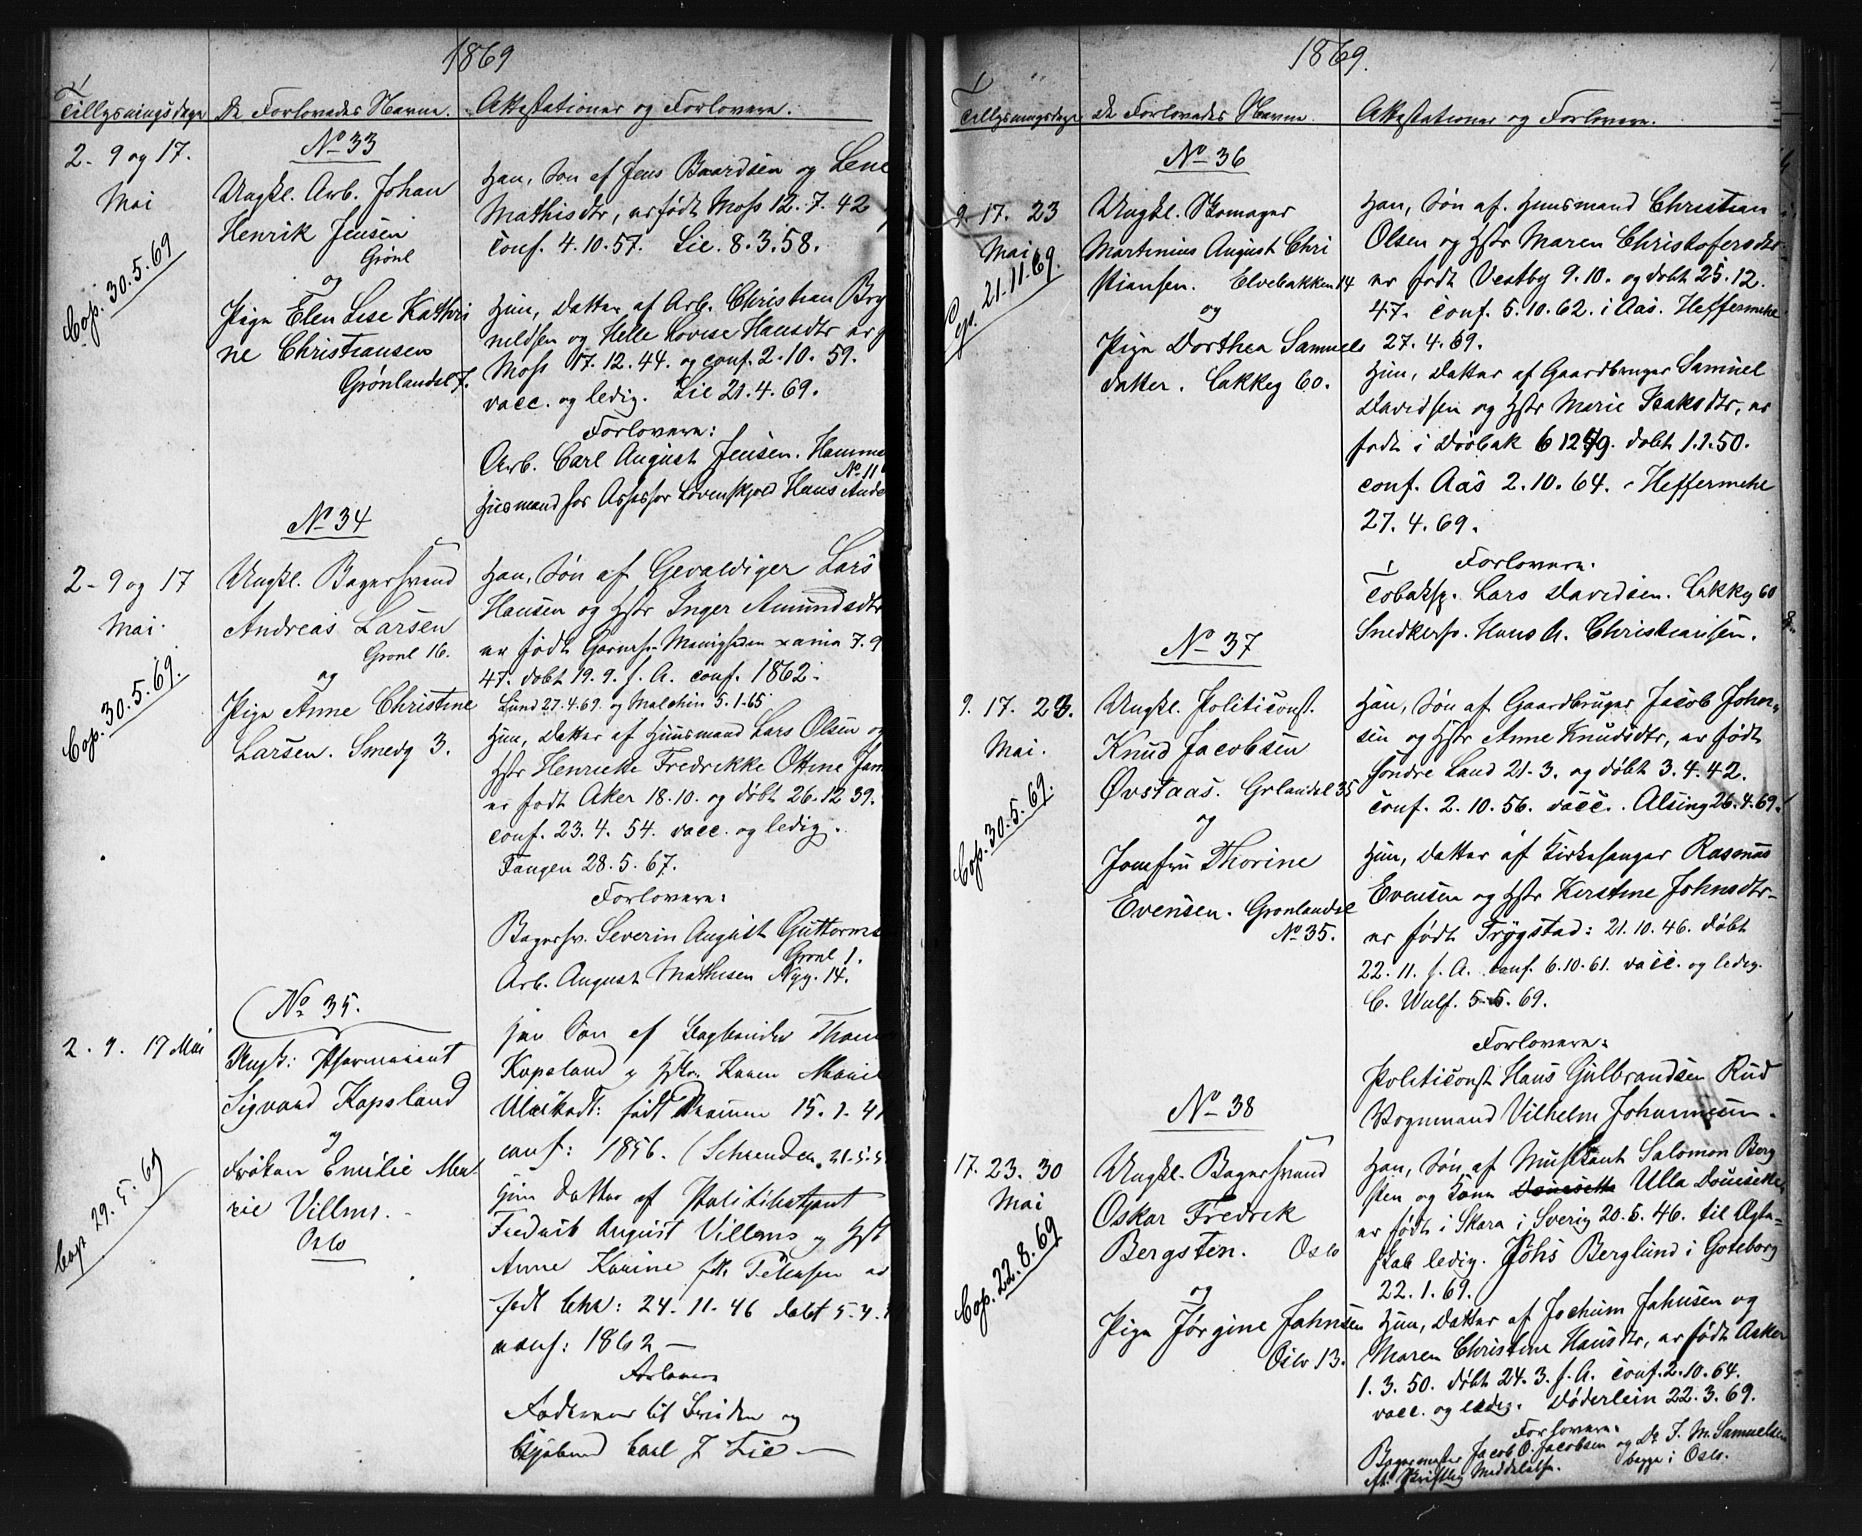 1869
Tillysningsdage De Forlovedes Navne. Attestationer og Forlovere.
No 33
2 - 9 og 17.
Mai
Cop. 30.5.69
Ungkl. Arb. Johan
Henrik Jensen
Grönl
og
Pige Elen Lise Kathri
ne Christiansen
Grønlandsl 7.
Han, Søn af Jens Baardsen og Lene
Mathisdtr, er født Moss 12.7.42
conf. 4.10.57. Lie. 8.3.58.
Hun, Datter af Arb. Christian Bry
nildsen og Helle Lovise Hansdtr er f
Moss 17.12.44. og conf. 2.10.59.
vacc. og ledig. Lie 21.4.69.
Forlovere:
Arb. Carl August Jensen. Hamme
No 11
Husmand for Assessor Lövenskjold Hans Ande
No 34
2 - 9 og 17
Mai.
Cop. 30.5.69.
Ungkl. Bagersvend
Andreas Larsen
Grönl 16.
og
Pige Anne Christine
Larsen. Smedg 3.
Han, Søn af Gevaldiger Lars
Hansen og Hstr Inger Amundsdtr
er født Garns. Menigheden 7.9
47. døbt 19.9. s. A. conf. 1862.
Lund 27.4.69. og Malchin 5.1.65
Hun, Datter af Huusmand Lars Olsen og
Hstr Henriette Fredrikke Ottine Jan
er født Aker 18.10. og døbt 26.12 39.
conf. 23.4.54. vacc. og ledig.
Tangen 28.5.67.
Forlovere:
Bagersv. Severin August Guttorms
Grönl 1.
Arb. August Mathisen Nyg. 14.
No 35.
2. 9. 17 Mai
Cop 29.5.69
Ungk: Pharmaceut
Sigvard Kapsland
og
Frøken Emilie Mar
rie Villms.
Oslo
Han Søn af Bogbinder Thom
Kapsland og Hstr. Karen Marie
født Drammen 15.1.41
conf: 1856. (
Hun datter af Politibetjent
Frederik August Villms og Hst
Anne Karine fdt Petersen er
født Chra: 24-11-46 døbt 5.4.
conf: 1862 -
Forlovere
og
Carl J Lie -
1869.
Tillysningsdage De Forlovedes Navne Attestationer og Forlovere.
No 36
9. 17. 23
Mai
Cop. 21.11.69.
Ungkl. Skomager
Martinius August Chri
stiansen. Elvebakken 14
og
Pige Dorthea Samuels
datter. Lakkeg 60.
Han, Søn af Huusmand Christian
Olsen og Hstr Maren Christofersdtr
er født Vestby 9.10. og døbt 25.12.
47. conf. 5.10.62. i Aas. Heffermehl
27.4.69.
Hun, Datter af Gaardbruger Samuel
Davidsen og Hstr Marie Isaksdtr, er
født i Drøbak 6 12 49. døbt 1.1.50.
conf. Aas 2.10.64. - Heffermehl
27.4.69.
Forlovere.
Tobaksp. Lars Davidsen. Lakkeg 60
Snedkersv. Hans A. Christiansen.
No 37
9. 17. 23.
Mai.
Cop. 30.5.69.
Ungkl. Politiconst.
Knud Jacobsen
Øvstaas. Grlandsl 35
og
Jomfru Thorine
Evensen. Grønlandsl
No 35.
Han, Søn af Gaardbruger Jacob John-
sen og Hstr Anne Knudsdtr, er født
Søndre Land 21.3. og døbt 3.4.42.
conf. 2.10.56. vacc. Alsing 26.4.69.
Hun, Datter af Kirkesanger Rasmus
Evensen og Hstr Kirstine Johnsdtr-
er født Trygstad: 21.10.46. døbt
22.11. s. A. conf. 6.10.61. vacc. og ledig.
C. Wulf. 5.5.69.
Forlovere:
Politiconst Hans Gulbrandsen Rud
Vognmand Vilhelm Johannesen.
No 38
17. 23. 30
Mai
Cop. 22.8.69
Ungkl. Bagersvend
Oskar Fredrik
Bergsten. Oslo
og
Pige Jørgine Jahnsen
Oslo 13.
Han, Søn af Musikant Salomon Berg
sten og Kone Ulla
er født i Skara i Sverig 20.5.46. til Ægte=
skab ledig. Johs Berglund i Goteborg
22.1.69.
Hun, Datter af Jochum Jahnsen og
Maren Christine Hansdtr, er født Asker
1.3.50. døbt 24.3. s. A. conf. 2.10.64.
vacc. og ledig. Döderlein 22.3.69.
Forlovere.
Bagermester Jacob O. Jacobsen og Do J. M. Samuelsen
Skriftlig Meddelelse. begge i Oslo.